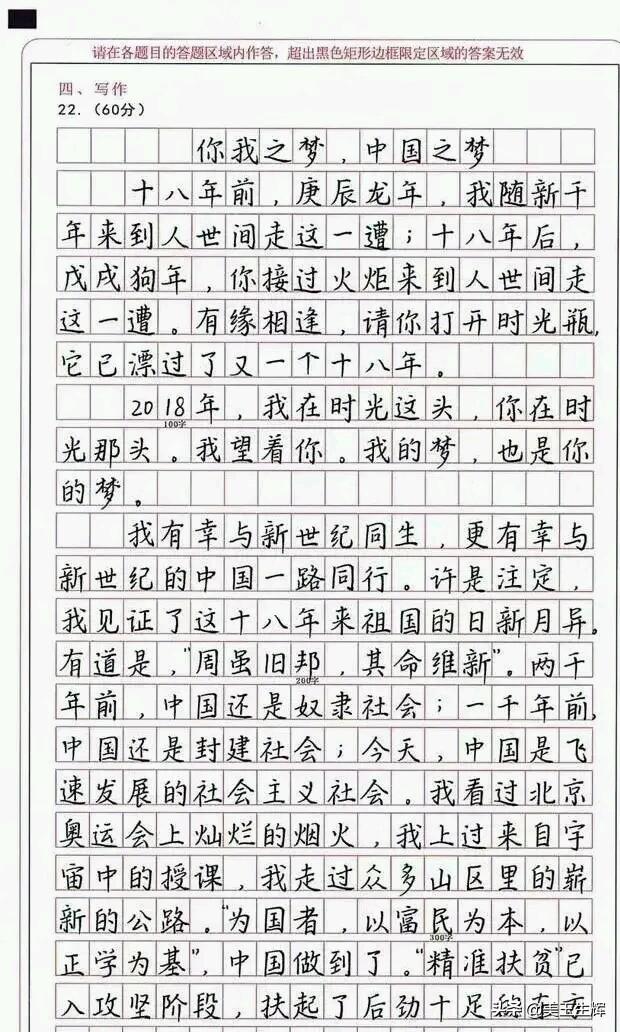 请在各题目的答题区域内作答，超出黑色矩形边框限定区域的答案无效
四、写作
22.（60分）
你我之梦，中国之梦
十八年前，庚辰龙年，我随新千
年来到人世间走这一遭；十八年后，
戊戌狗年，你接过火炬来到人世间走
这一遭。有缘相逢，请你打开时光瓶，
它已漂过了又一个十八年。
2018年，我在时光这头，你在时
100字
光那头。我望着你。我的梦，也是你
的梦。
我有幸与新世纪同生，更有幸与
新世纪的中国一路同行。许是注定，
我见证了这十八年来祖国的日新月异。
有道是，“周虽旧邦，其命维新”。两千
200字
年前，中国还是奴隶社会；一千年前，
中国还是封建社会；今天，中国是飞
速发展的社会主义社会。我看过北京
奥运会上灿烂的烟火，我上过来自宇
宙中的授课，我走过众多山区里的崭
新的公路。“为国者，以富民为本，以
300字
正学为基”，中国做到了。“精准扶贫”已
入攻坚阶段，扶起了后劲十足的
头条@美玉生辉